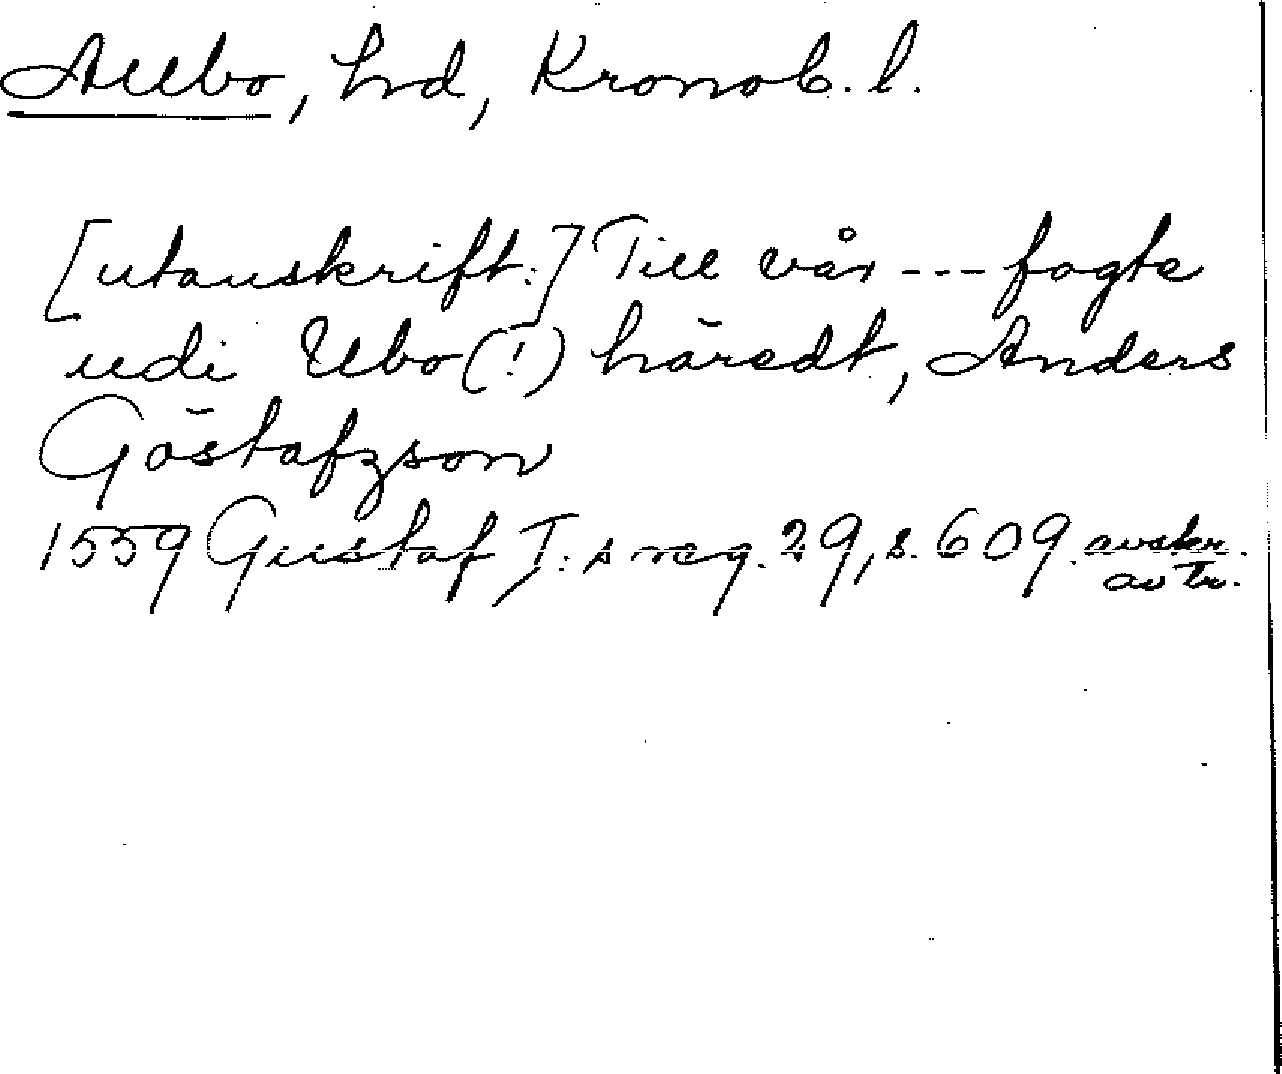 Allbo, hd, Kronob. l.
[utanskrift:] Till vår --- fogte
udi Ubo(!) häredt, Anders
Göstafzson
1559 Gustaf I:s reg. 29, s. 609. avskr.
av Tr.